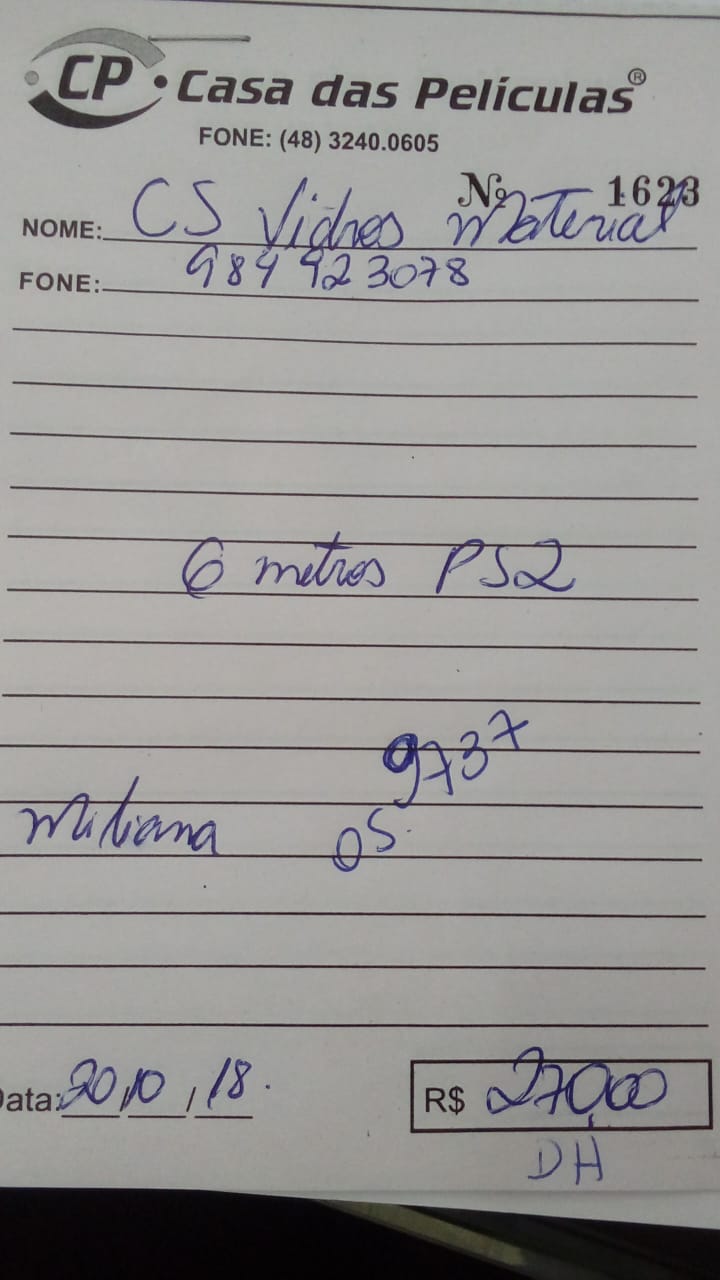 CP • Casa das Películas®
FONE: (48) 3240.0605
Nº 1623
NOME: CS Vidros Material
FONE: 984923078
6 metros PS2
9737
Miliana OS.
Data: 20/10/18.
R$ 270,00
DH